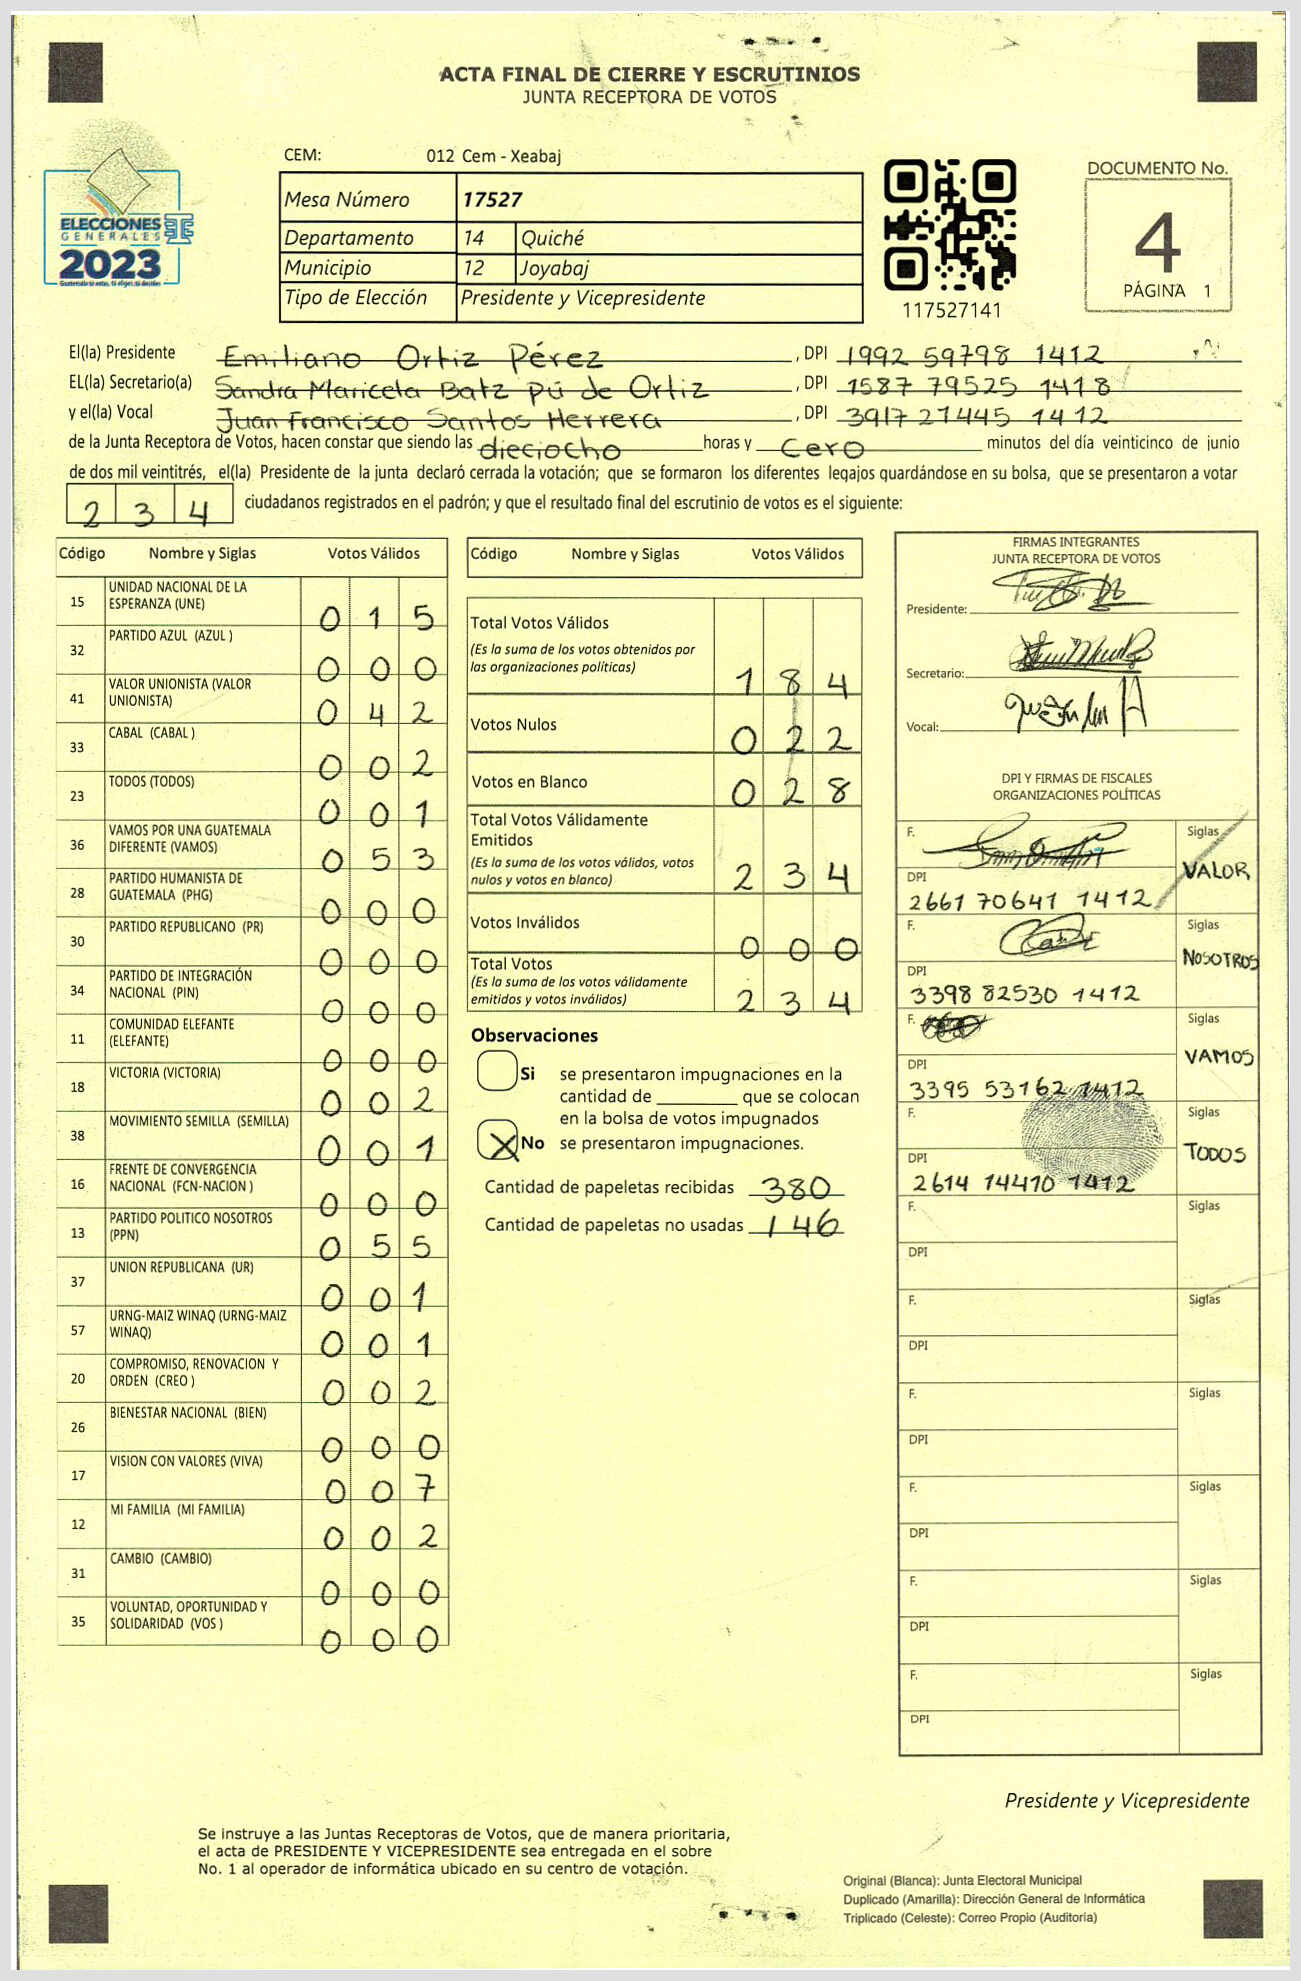 ACTA FINAL DE CIERRE Y ESCRUTINIOS
JUNTA RECEPTORA DE VOTOS
CEM: 012 Cem - Xeabaj
Mesa Número 17527
Departamento 14 Quiché
Municipio 12 Joyabaj
Tipo de Elección Presidente y Vicepresidente
ELECCIONES
GENERALES
2023
117527141
DOCUMENTO No.
4
PÁGINA 1
El(la) Presidente Emiliano Ortiz Pérez , DPI 1992 59798 1412
EL(la) Secretario(a) Sandra Maricela Batz Pú de Ortiz , DPI 1587 79525 1418
y el(la) Vocal Juan Francisco Santos Herrera , DPI 3917 21445 1412
de la Junta Receptora de Votos, hacen constar que siendo las dieciocho horas y Cero minutos del día veinticinco de junio
de dos mil veintitrés, el(la) Presidente de la junta declaró cerrada la votación; que se formaron los diferentes legajos quardándose en su bolsa, que se presentaron a votar
2 3 4 ciudadanos registrados en el padrón; y que el resultado final del escrutinio de votos es el siguiente:
Código Nombre y Siglas Votos Válidos
15 UNIDAD NACIONAL DE LA
ESPERANZA (UNE) 0 1 5
32 PARTIDO AZUL (AZUL ) 0 0 0
41 VALOR UNIONISTA (VALOR
UNIONISTA) 0 4 2
33 CABAL (CABAL ) 0 0 2
23 TODOS (TODOS) 0 0 1
36 VAMOS POR UNA GUATEMALA
DIFERENTE (VAMOS) 0 5 3
28 PARTIDO HUMANISTA DE
GUATEMALA (PHG) 0 0 0
30 PARTIDO REPUBLICANO (PR) 0 0 0
34 PARTIDO DE INTEGRACIÓN
NACIONAL (PIN) 0 0 0
11 COMUNIDAD ELEFANTE
(ELEFANTE) 0 0 0
18 VICTORIA (VICTORIA) 0 0 2
38 MOVIMIENTO SEMILLA (SEMILLA) 0 0 1
16 FRENTE DE CONVERGENCIA
NACIONAL (FCN-NACION ) 0 0 0
13 PARTIDO POLITICO NOSOTROS
(PPN) 0 5 5
37 UNION REPUBLICANA (UR) 0 0 1
57 URNG-MAIZ WINAQ (URNG-MAIZ
WINAQ) 0 0 1
20 COMPROMISO, RENOVACION Y
ORDEN (CREO ) 0 0 2
26 BIENESTAR NACIONAL (BIEN) 0 0 0
17 VISION CON VALORES (VIVA) 0 0 7
12 MI FAMILIA (MI FAMILIA) 0 0 2
31 CAMBIO (CAMBIO) 0 0 0
35 VOLUNTAD, OPORTUNIDAD Y
SOLIDARIDAD (VOS ) 0 0 0
Código Nombre y Siglas Votos Válidos
Total Votos Válidos
(Es la suma de los votos obtenidos por
las organizaciones políticas) 1 8 4
Votos Nulos 0 2 2
Votos en Blanco 0 2 8
Total Votos Válidamente
Emitidos
(Es la suma de los votos válidos, votos
nulos y votos en blanco) 2 3 4
Votos Inválidos 0 0 0
Total Votos
(Es la suma de los votos válidamente
emitidos y votos inválidos) 2 3 4
Observaciones
Si se presentaron impugnaciones en la
cantidad de ________ que se colocan
en la bolsa de votos impugnados
X No se presentaron impugnaciones.
Cantidad de papeletas recibidas 380
Cantidad de papeletas no usadas 146
FIRMAS INTEGRANTES
JUNTA RECEPTORA DE VOTOS
Presidente:
Secretario:
Vocal:
DPI Y FIRMAS DE FISCALES
ORGANIZACIONES POLÍTICAS
F. Siglas
VALOR
DPI
2661 70641 1412
F. Siglas
NOSOTROS
DPI
3398 82530 1412
F. Siglas
VAMOS
DPI
3395 53162 1412
F. Siglas
TODOS
DPI
2614 14410 1412
F. Siglas
DPI
F. Siglas
DPI
F. Siglas
DPI
F. Siglas
DPI
F. Siglas
DPI
F. Siglas
DPI
Presidente y Vicepresidente
Se instruye a las Juntas Receptoras de Votos, que de manera prioritaria,
el acta de PRESIDENTE Y VICEPRESIDENTE sea entregada en el sobre
No. 1 al operador de informática ubicado en su centro de votación.
Original (Blanca): Junta Electoral Municipal
Duplicado (Amarilla): Dirección General de Informática
Triplicado (Celeste): Correo Propio (Auditoría)